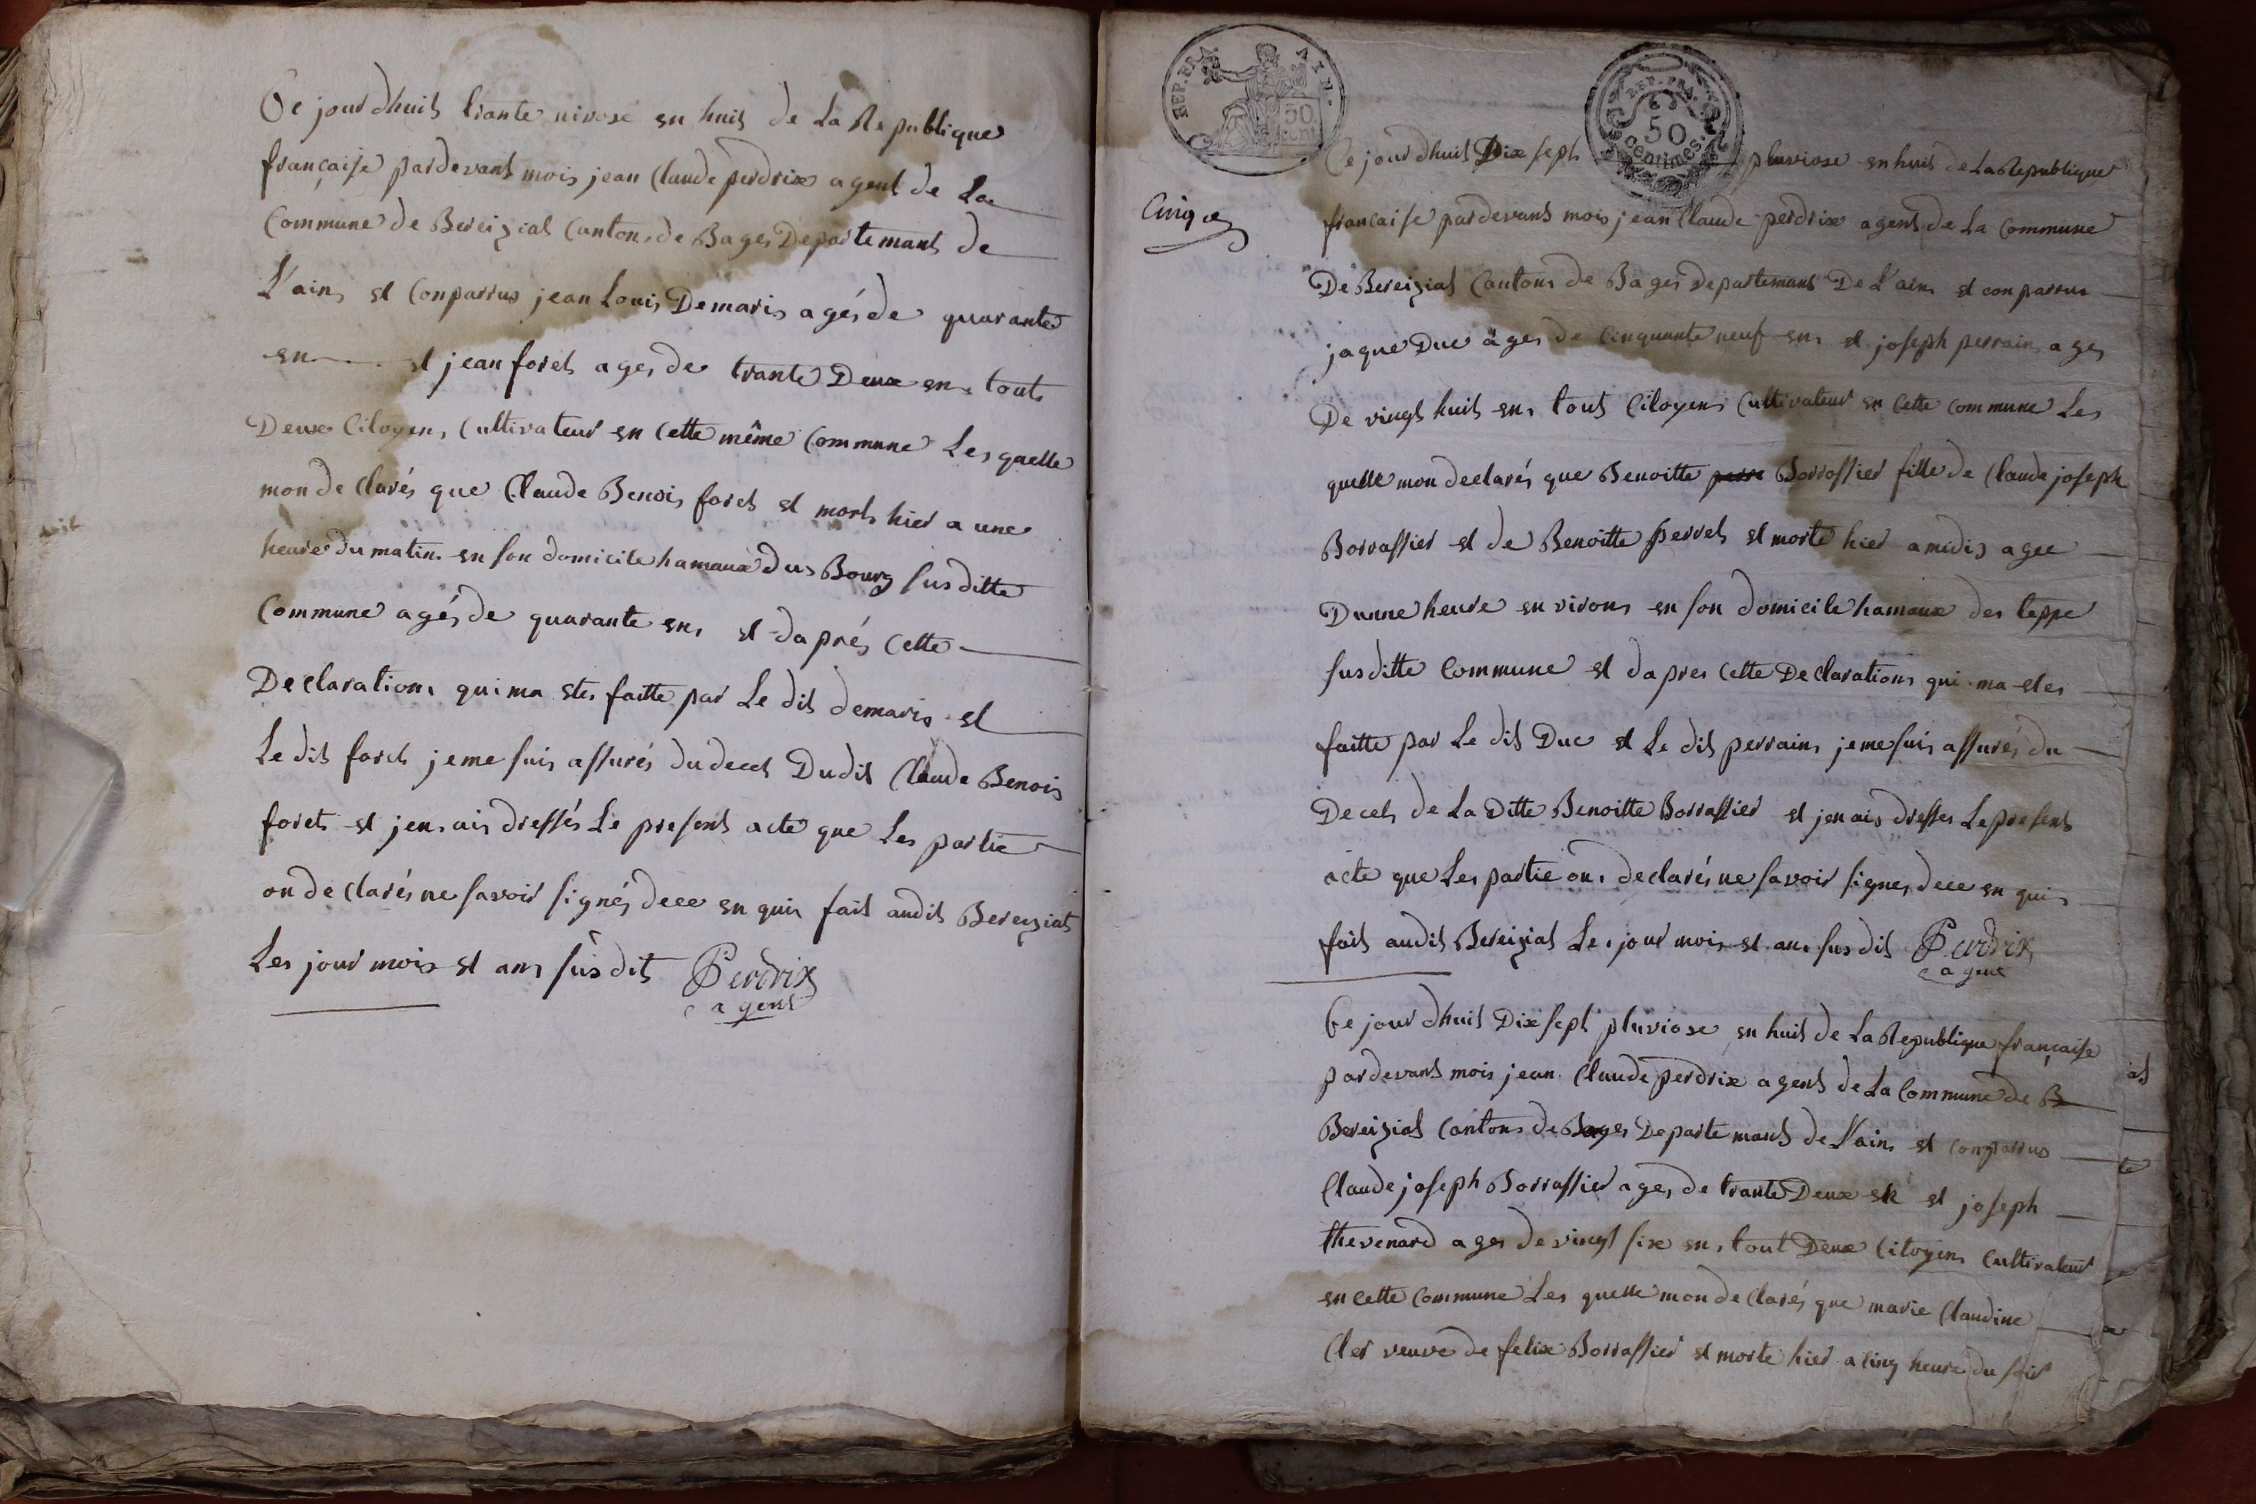 Ce jour dhuit trante nivose en huit de La Republique
française pardevant mois jean Claude perdrix agent de La
Commune de Bereiziat Canton de Bages Departemant de
L'ain et Conparrus jean Louis Demaris agés de quarante
en et jean foret ages de trante Deux en tout
Deux Citoyens Cultivateur en Cette même Commune Les quelle
mon de Clarés que Claude Benois foret et mort hier a une
heure du matin en son domicile hamaux du Bourg sus ditte
Commune agés de quarante en et daprés Cette
Declaration qui ma etes faitte par Le dit demaris et
Le dit foret je me suis assurés du decet Du dit Claude Benois
foret et jen ais dressés Le present acte que Les partie
on de Clarés ne savoir signés dece en quis fait audit Bereziat
Les jour mois et ans susdit Perdrix
agent
REP. FRA. 50 cent
REP. FRA. 50 centimes
Cinq
Ce jour dhuit Dix sept pluviose en huit de La Republique
française pardevant mois jean Claude perdrix agent de La Commune
De Bereiziat Canton de Bages departemant De L'ain et conparrus
jaque Duc ages de Cinquante neuf en et joseph perrain ages
De vingt huit en tout Citoyens Cultivateur en Cette commune Les
quelle mon declarés que Benoitte perre Borrassier fille de Claude joseph
Borrassier et de Benoitte perret et morte hier a midis agee
Dunne heure environ en son domicile hamaux des teppe
susditte Commune et dapres Cette Declarations qui ma etes
faitte par Le dit Duc et Le dit perrain je me suis assurés du
Decet de La Ditte Benoitte Borrassier et jen ais dresses Le present
acte que Les partie on declarés ne savoir signes dece en quis
fait audit Bereiziat Les jour mois et ans susdit Perdrix
agent
Ce jour dhuit Dix sept pluviose en huit de La Republique française
pardevant mois jean Claude perdrix agent de La Commune de B
Bereiziat Canton de Bages Departemant de L'ain et conparrus
Claude joseph Borrassier ages de trante Deux en et joseph
thevenard ages de vingt six en tout Deux Citoyens Cultivateur
en Cette Commune Les quelle mon de Clarés que marie Claudine
Cler veuve de felix Borrassier et morte hier a Cinq heure du soir